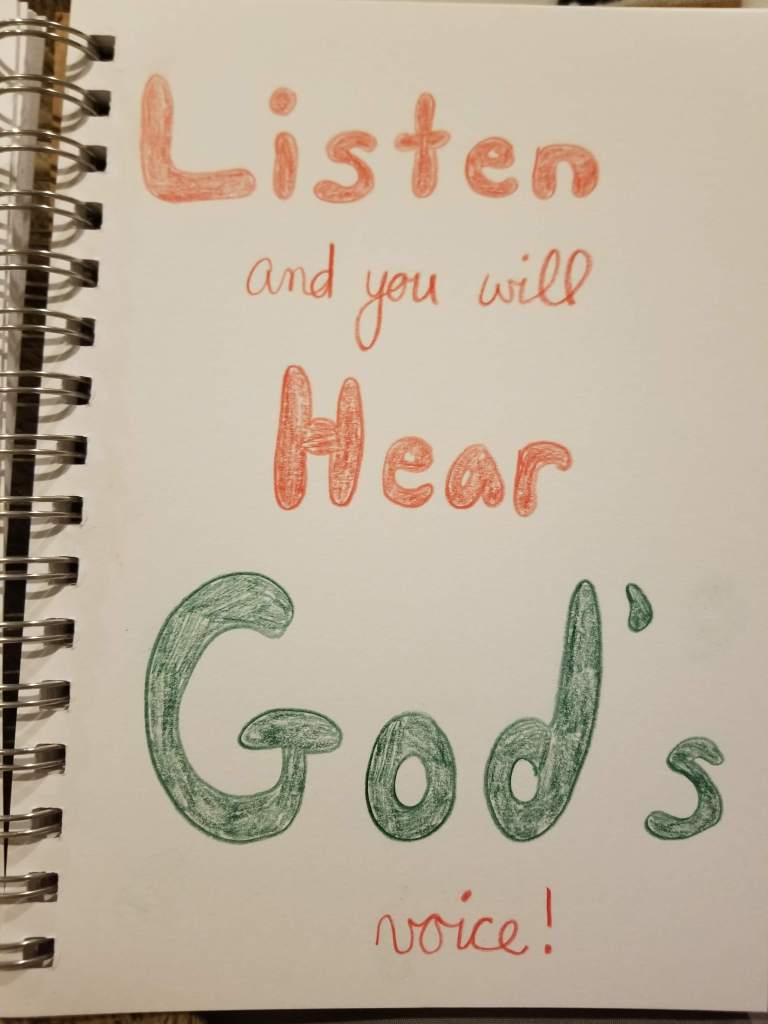 Listen
and you will
Hear
God's
voice!